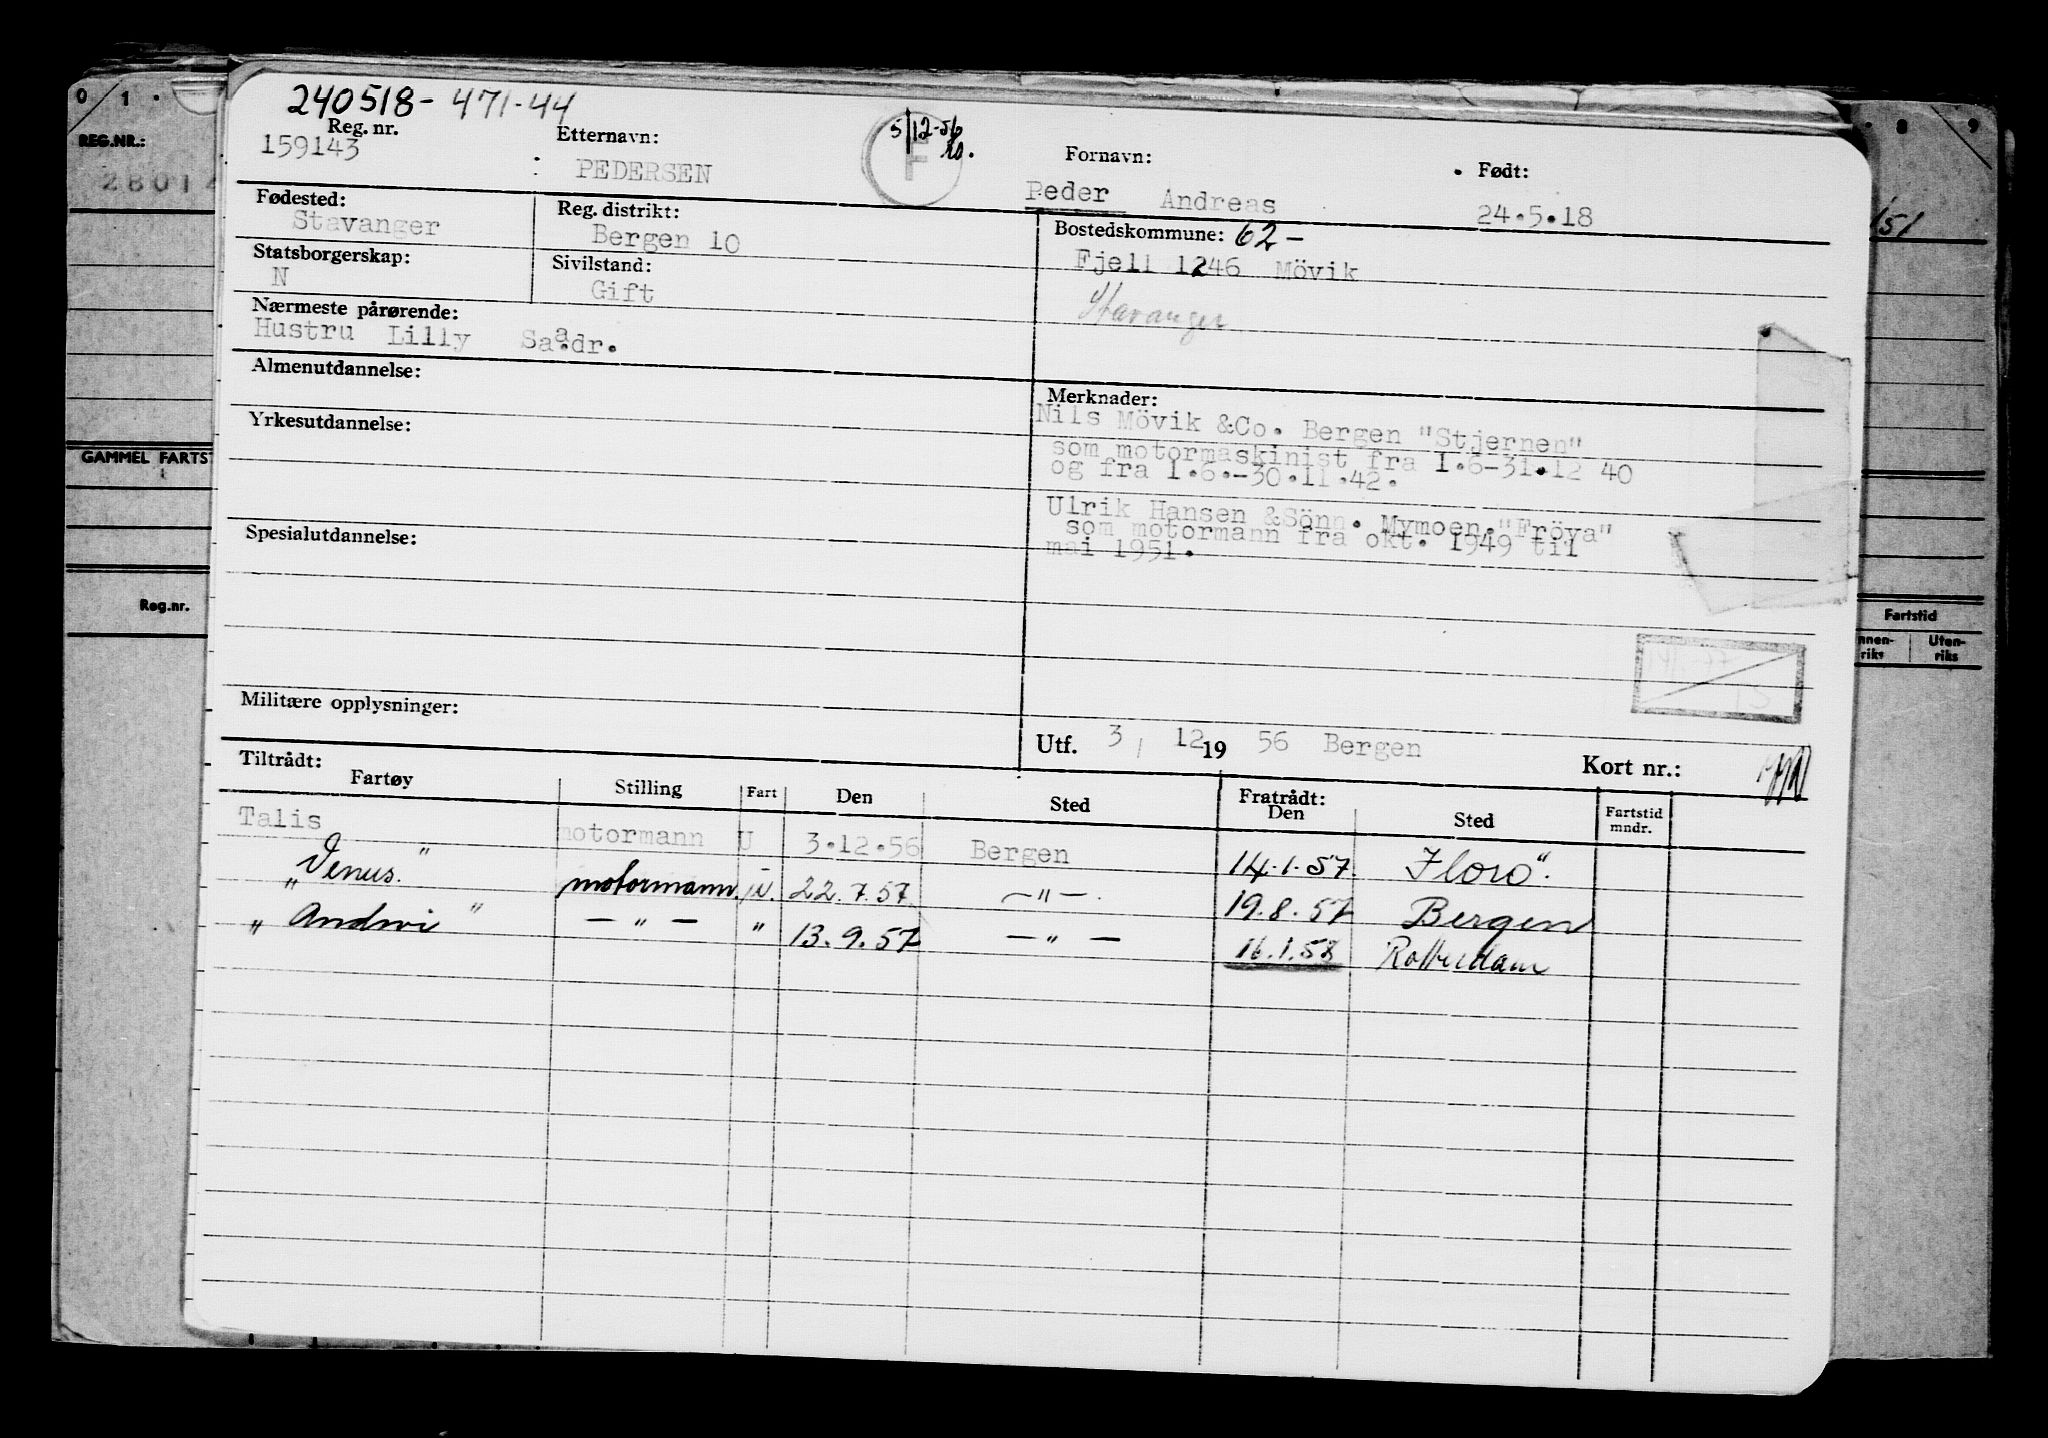 0 1 8 9
REG.NR.:
GAMMEL FARTS
Reg.nr.
151
Fartstid
nnen-
riks
Uten-
riks
240518- 471-44
Reg. nr.
159143
Etternavn:
PEDERSEN
5/12-56
F
Fornavn:
Peder Andreas
Født:
24.5.18
Fødested:
Stavanger
Reg. distrikt:
Bergen 10
Bostedskommune: 62-
Fjell 1246 Mövik
Stavanger
Statsborgerskap:
N
Sivilstand:
Gift
Nærmeste pårørende:
Hustru Lilly Sa.adr.
Almenutdannelse:
Yrkesutdannelse:
Spesialutdannelse:
Militære opplysninger:
Merknader:
Nils Mövik &Co. Bergen "Stjernen"
som motormaskinist fra 1.6-31.12 40
og fra 1.6.-30.11.42.
Ulrik Hansen &Sönn. Mymoen."Fröya"
som motormann fra okt. 1949 til
mai 1951.
Utf. 3 / 12 19 56 Bergen
Kort nr.:
Tiltrådt:
Fartøy Stilling Fart Den Sted Fratrådt: Den Sted Fartstid mndr.
Talis motormann U 3.12.56 Bergen 14.1.57. Florö.
"Venus." motormann. U. 22.7.57 —"—. 19.8.57 Bergen
"Andwi" —"— " 13.9.57 —"— 16.1.58 Rotterdam